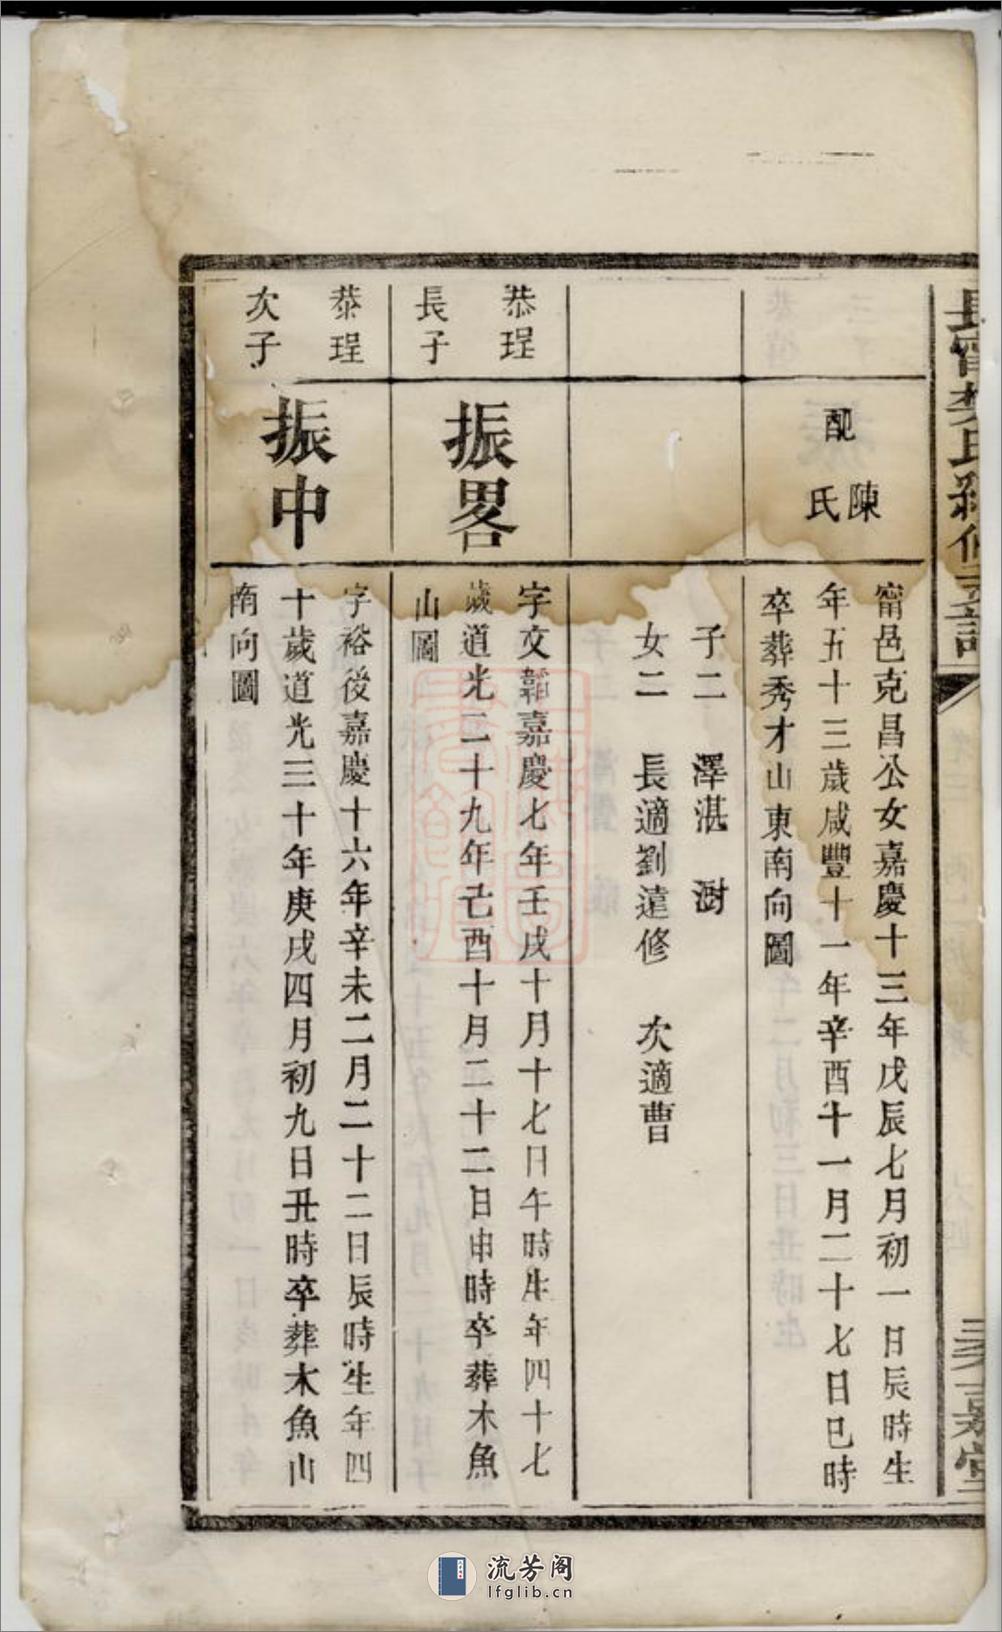 配陳氏
甯邑克昌公女嘉慶十三年戊辰七月初一日辰時生
年五十三歲咸豐十一年辛酉十一月二十七日巳時
卒葬秀才山東南向圖
子二 澤湛 澍
女二 長適劉遠修 次適曹
恭珵
長子
振畧
字文韜嘉慶七年壬戌十月十七日午時生年四十七
歲道光二十九年己酉十月二十二日申時卒葬木魚
山圖
恭珵
次子
振中
字裕後嘉慶十六年辛未二月二十二日辰時生年四
十歲道光三十年庚戌四月初九日丑時卒葬木魚山
南向圖
流芳阁
lfglib.cn